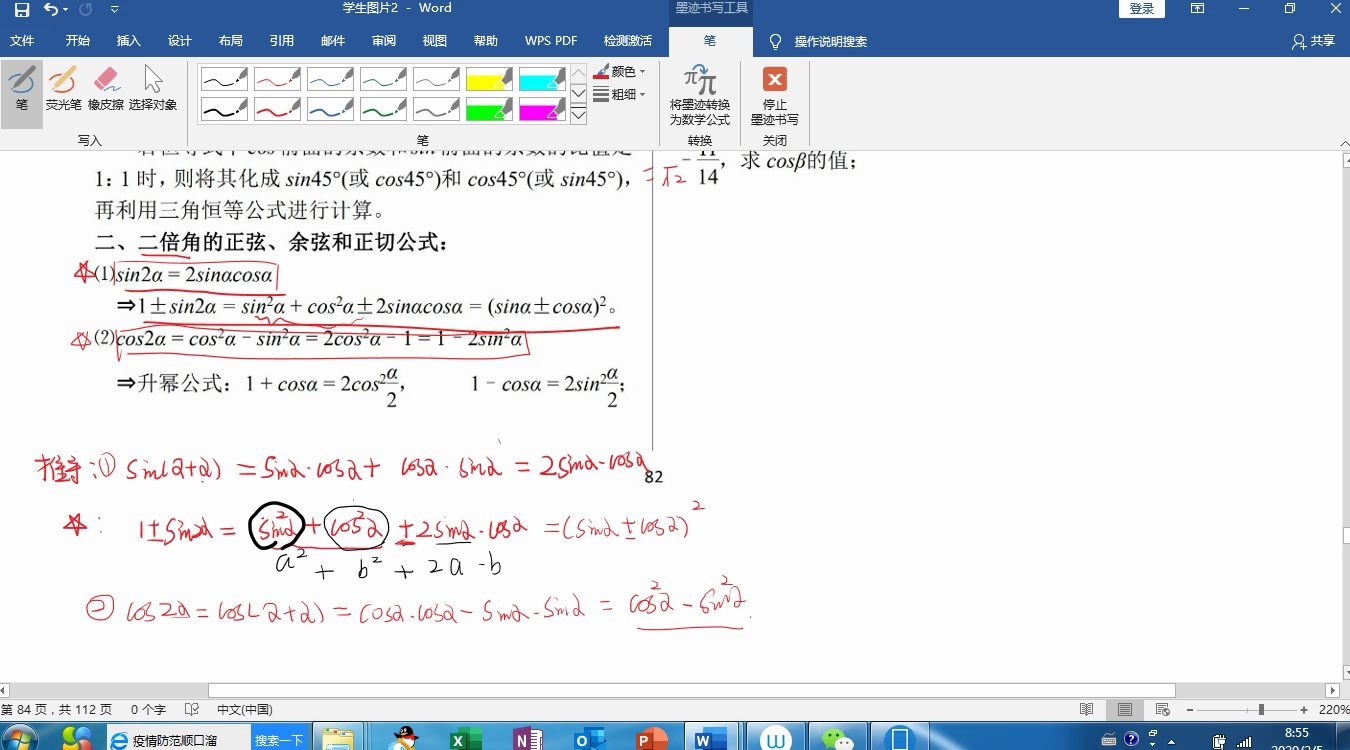 学生图片2 - Word
墨迹书写工具
登录
文件 开始 插入 设计 布局 引用 邮件 审阅 视图 帮助 WPS PDF 检测激活 笔 操作说明搜索 共享
笔 荧光笔 橡皮擦 选择对象
颜色
粗细
将墨迹转换为数学公式
停止墨迹书写
写入 笔 转换 关闭
= √2
14, 求 cosβ的值;
1: 1 时,则将其化成 sin45°(或 cos45°)和 cos45°(或 sin45°),
再利用三角恒等公式进行计算。
二、二倍角的正弦、余弦和正切公式:
☆(1)sin2α = 2sinαcosα
⇒1±sin2α = sin²α + cos²α±2sinαcosα = (sinα±cosα)²。
☆(2)cos2α = cos²α − sin²α = 2cos²α − 1 = 1 − 2sin²α
⇒升幂公式: 1 + cosα = 2cos²α/2, 1 − cosα = 2sin²α/2;
推导:① sin(α+α) = sinα·cosα + cosα·sinα = 2sinα·cosα
82
☆: 1±sin2α = sin²α + cos²α ± 2sinα·cosα = (sinα±cosα)²
a² + b² + 2a·b
② cos2α = cos(α+α) = cosα·cosα − sinα·sinα = cos²α − sin²α.
第 84 页,共 112 页 0 个字 中文(中国) 220%
疫情防范顺口溜 搜索一下
8:55